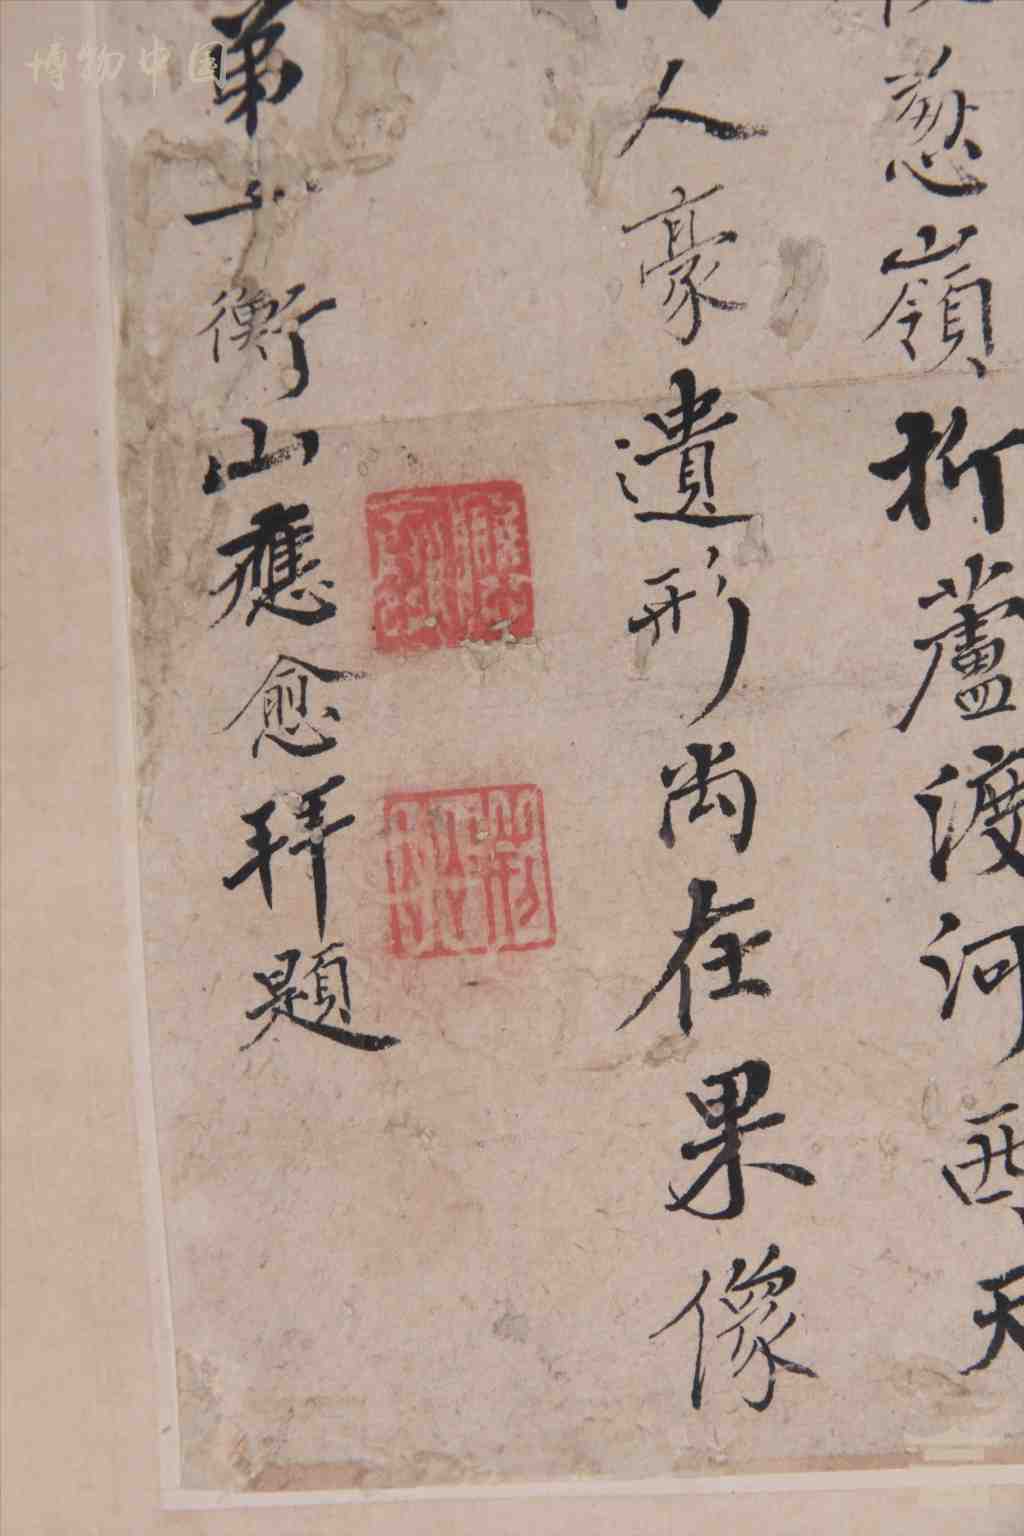 葱嶺折蘆渡河西天
人豪遺形尚在果像
弟子衡山應愈拜題
博物中国